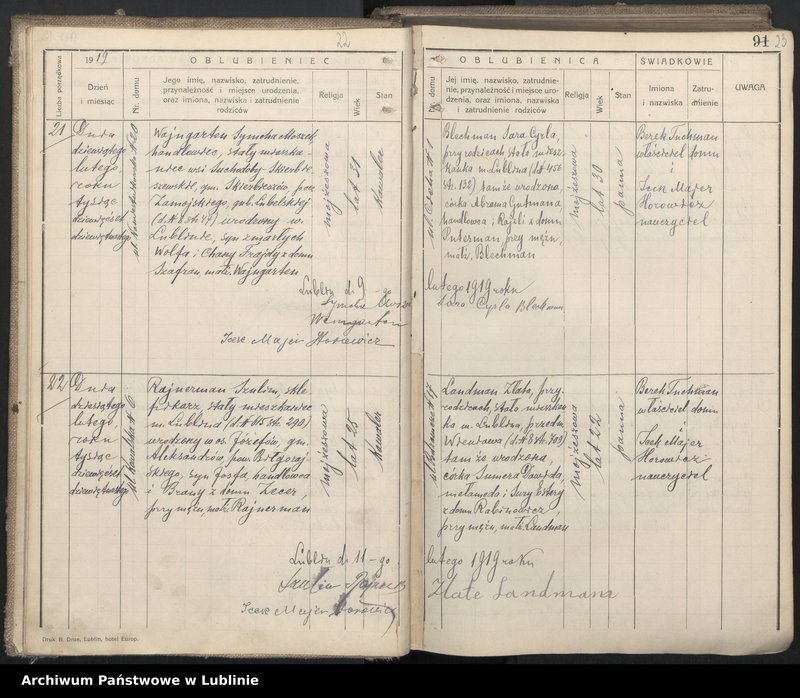 22
1919
OBLUBIENIEC
Liczba porządkowa
Dzień
i miesiąc
Nr. domu
Jego imię, nazwisko, zatrudnienie,
przynależność i miejsce urodzenia,
oraz imiona, nazwiska i zatrudnienie
rodziców
Religja
Wiek
Stan
21
Dnia
dziewiątego
lutego,
roku
tysiąc
dziewięćset
dziewiętnastego
Wajngarten Symcha Moszek,
handlowiec, stały mieszka-
niec wsi Suchodoły-Skierbie-
szewskie, gm. Skierbieszów, pow.
Zamojskiego, gub. Lubelskiej
urodzony w
Lublinie, syn zmarłych
Wolfa i Chany Frajdy z domu
Szafran, małż. Wajngarten
mojżeszowa
lat 31
kawaler
Lublin d. 9-go
Symcha
Weingarten
Icek Majer Horowicz
22
Dnia
dziesiątego
lutego,
roku
tysiąc
dziewięćset
dziewiętnastego
Rajnerman Szulim, skle-
pikarz, stały mieszkaniec
m. Lublina (d. № 45 st. 290)
urodzony w os. Józefów, gm.
Aleksandrów, pow. Biłgoraj-
skiego, syn Josfa, handlowca
i Brany z domu Lecer,
przy mężu, małż. Rajnerman
mojżeszowa
lat 25
kawaler
Lublin d. 11-go
Szulim
Icek Majer Horowicz
Druk B. Drue, Lublin, hotel Europ.
91 23
OBLUBIENICA
ŚWIADKOWIE
Nr. domu
Jej imię, nazwisko, zatrudnie-
nie, przynależność i miejsce uro-
dzenia, oraz imiona, nazwiska
i zatrudnienie rodziców
Religja
Wiek
Stan
Imiona
i nazwiska
Zatru-
dnienie
UWAGA
Blechman Sara Cyrla,
przy rodzicach, stała miesz-
kanka m. Lublina (d. № 456
st. 138) tamże urodzona,
córka Abrama Gutmana
handlowca i Rajzli z domu
Puterman przy mężu,
małż. Blechman
mojżeszowa
lat 30
panna
Berek Tuchman
właściciel domu
i
Icek Majer
Horowicz
nauczyciel
lutego 1919 roku
Sara Cyrla Blechman
Landman Złata, przy
rodzicach, stała mieszkan-
ka m. Lublina, przedm.
Wieniawa (d. № 8 st. 709)
tamże urodzona,
córka Sumera Dawida,
mełameda i Sury Estery
z domu Rabinowicz,
przy mężu, małż. Landman
mojżeszowa
lat 22
panna
Berek Tuchman
właściciel domu
i
Icek Majer
Horowicz
nauczyciel
lutego 1919 roku
Złate Landmana
Archiwum Państwowe w Lublinie